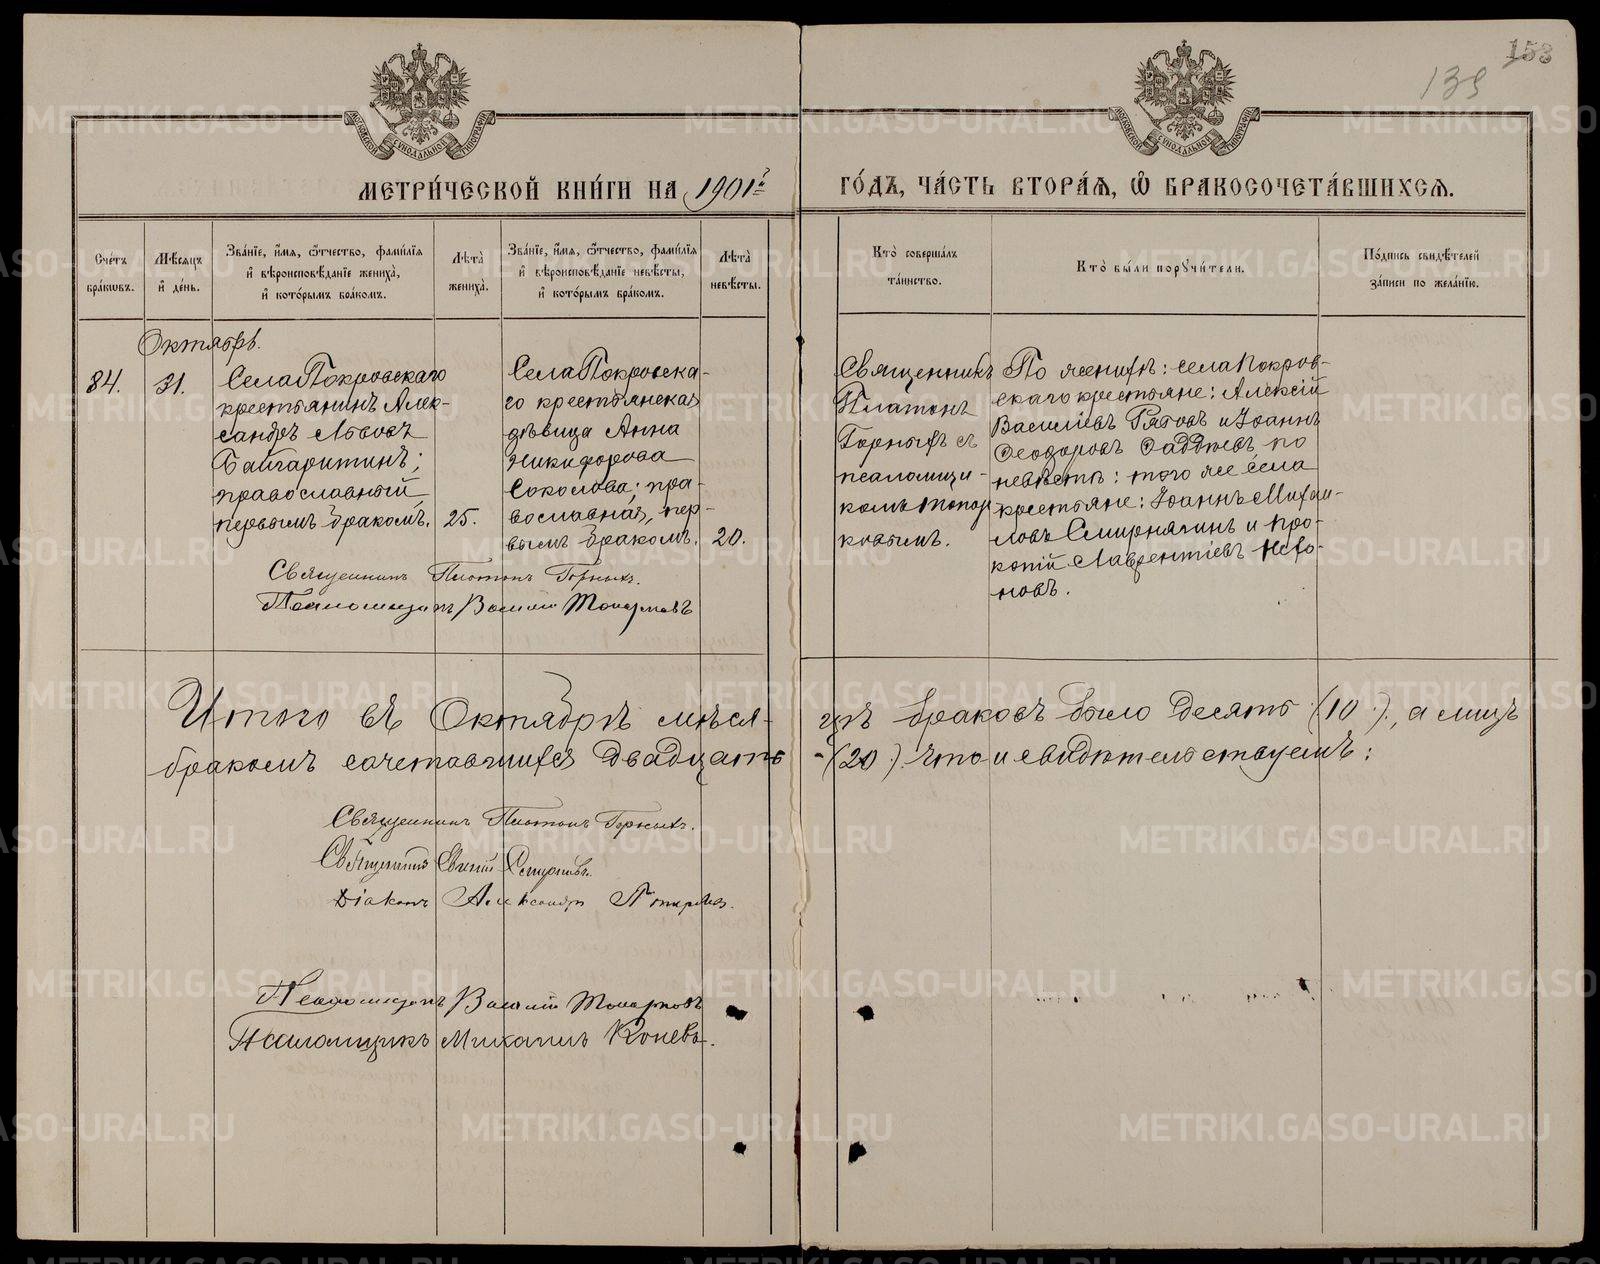 153
139
МОСКОВСКОЙ СѴНОДАЛЬНОЙ ТИПОГРАФІИ
МОСКОВСКОЙ СѴНОДАЛЬНОЙ ТИПОГРАФІИ
МЕТРИ́ЧЕСКОЙ КНИ́ГИ НА 1901й
ГО́ДЪ, ЧА́СТЬ ВТОРА́Ѧ, Ѽ БРАКОСОЧЕТА́ВШИХСѦ.
Сче́тъ бра́кѡвъ.
Мѣ́сяцъ и҆ де́нь.
Зва́нїе, и҆́мѧ, ѻ҆́тчество, фами́лїѧ
и҆ вѣроисповѣ́данїе жениха̀,
и҆ кото́рымъ бра́комъ.
Лѣ́та̀ жениха̀.
Зва́нїе, и҆́мѧ, ѻ҆́тчество, фами́лїѧ
и҆ вѣроисповѣ́данїе невѣ́сты,
и҆ кото́рымъ бра́комъ.
Лѣ́та̀ невѣ́сты.
Кто̀ соверша́лъ
та́инство.
Кто̀ бы́ли порꙋчи́тели.
По́дпись свидѣ́телей
за́писи по жела́нїю.
Октябрь.
84.
31.
Села Покровскаго
крестьянинъ Алек-
сандръ Львовъ
Байгаритинъ;
православный,
первымъ бракомъ.
25.
Села Покровска-
го крестьянская
дѣвица Анна
Никифорова
Соколова; пра-
вославная, пер-
вымъ бракомъ.
20.
Священникъ
Платонъ
Горныхъ съ
псаломщи-
комъ Топор
ковымъ.
По женихѣ: села Покров-
скаго крестьяне: Алексій
Василіевъ Рятовъ и Іоаннъ
Ѳеодоровъ Ѳаддѣевъ, по
невѣстѣ: того же села
крестьяне: Іоаннъ Михаи-
ловъ Смирнягинъ и Про-
копій Лаврентіевъ
Священникъ Платонъ Горныхъ.
Псаломщикъ Василій Топорковъ
Итого въ Октябрѣ мѣся-
цѣ браковъ было десять (10), а лицъ
бракомъ сочетавшихся двадцать
(20). Что и свидѣтельствуемъ:
Священникъ Платонъ Горныхъ.
Священникъ Евгеній Смирновъ.
Діаконъ Александръ
Псаломщикъ Василій Топорковъ
Псаломщикъ Михаилъ Коневъ.
METRIKI.GASO-URAL.RU